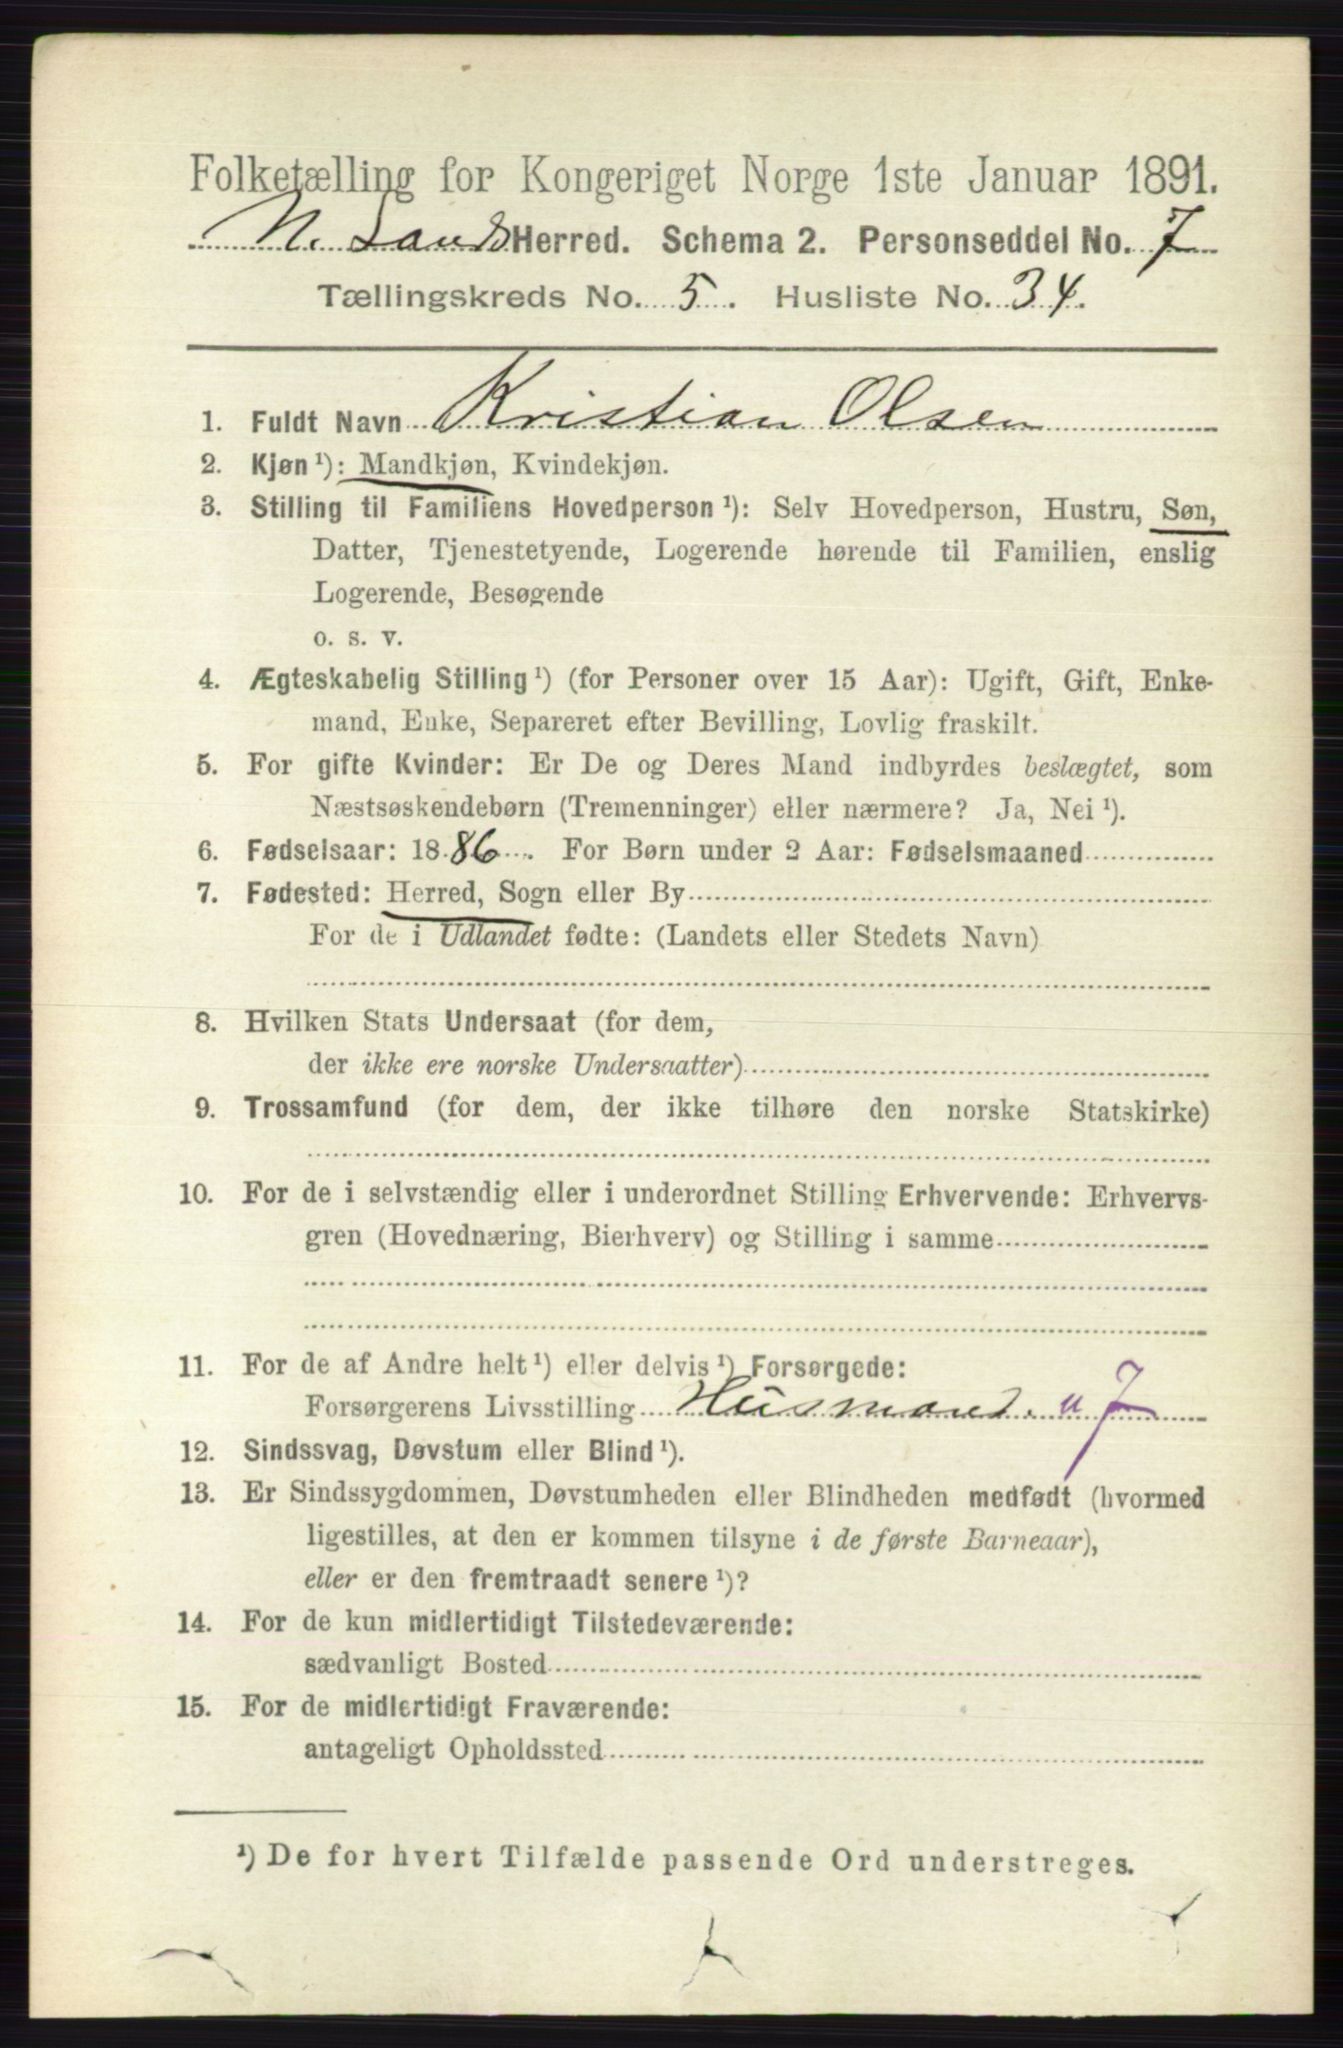 Folketælling for Kongeriget Norge 1ste Januar 1891.
N. Lands Herred. Schema 2. Personseddel No. 7
Tællingskreds No. 5. Husliste No. 34.
1. Fuldt Navn Kristian Olsen
2. Kjøn ¹): Mandkjøn, Kvindekjøn.
3. Stilling til Familiens Hovedperson ¹): Selv Hovedperson, Hustru, Søn,
Datter, Tjenestetyende, Logerende hørende til Familien, enslig
Logerende, Besøgende
o. s. v.
4. Ægteskabelig Stilling ¹) (for Personer over 15 Aar): Ugift, Gift, Enke-
mand, Enke, Separeret efter Bevilling, Lovlig fraskilt.
5. For gifte Kvinder: Er De og Deres Mand indbyrdes beslægtet, som
Næstsøskendebørn (Tremenninger) eller nærmere? Ja, Nei ¹).
6. Fødselsaar: 1886. For Børn under 2 Aar: Fødselsmaaned
7. Fødested: Herred, Sogn eller By
For de i Udlandet fødte: (Landets eller Stedets Navn)
8. Hvilken Stats Undersaat (for dem,
der ikke ere norske Undersaatter)
9. Trossamfund (for dem, der ikke tilhøre den norske Statskirke)
10. For de i selvstændig eller i underordnet Stilling Erhvervende: Erhvervs-
gren (Hovednæring, Bierhverv) og Stilling i samme
11. For de af Andre helt ¹) eller delvis ¹) Forsørgede:
Forsørgerens Livsstilling Husmand. u 7
12. Sindssvag, Døvstum eller Blind ¹).
13. Er Sindssygdommen, Døvstumheden eller Blindheden medfødt (hvormed
ligestilles, at den er kommen tilsyne i de første Barneaar),
eller er den fremtraadt senere ¹)?
14. For de kun midlertidigt Tilstedeværende:
sædvanligt Bosted
15. For de midlertidigt Fraværende:
antageligt Opholdssted
¹) De for hvert Tilfælde passende Ord understreges.